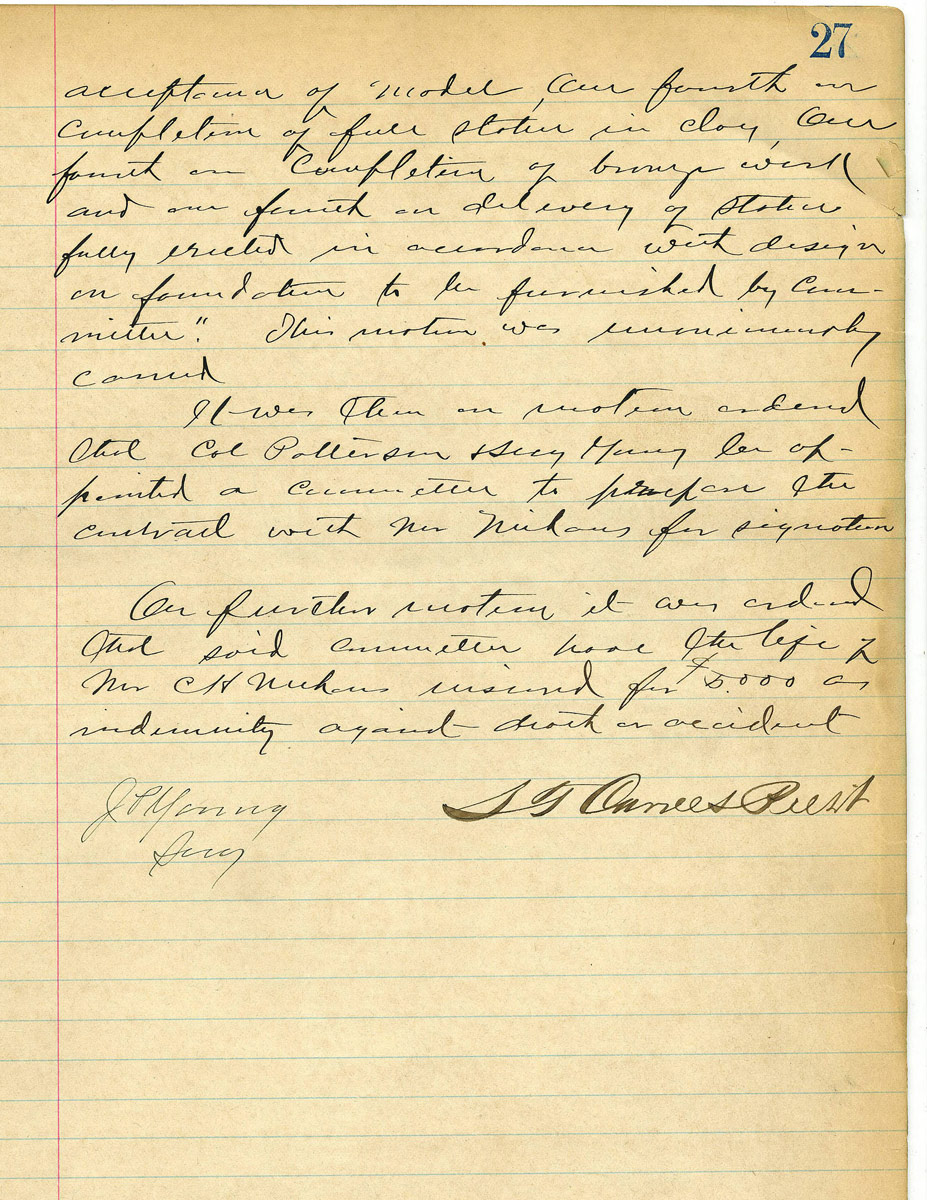 27
acceptance of model, One fourth on
completion of full statue in clay, One
fourth on completion of bronze work
and one fourth on delivery of statue
fully erected in accordance with design
on foundation to be furnished by Com-
mittee". This motion was unanimously
carried
It was then on motion ordered
that Col Patterson & Secy Young be ap-
pointed a committee to prepare the
contract with Mr Niehaus for signature
On further motion it was ordered
that said committee have the life of
Mr C H Niehaus insured for $5.000 as
indemnity against death or accident
J P Young
Secy
S T Carnes Presdt